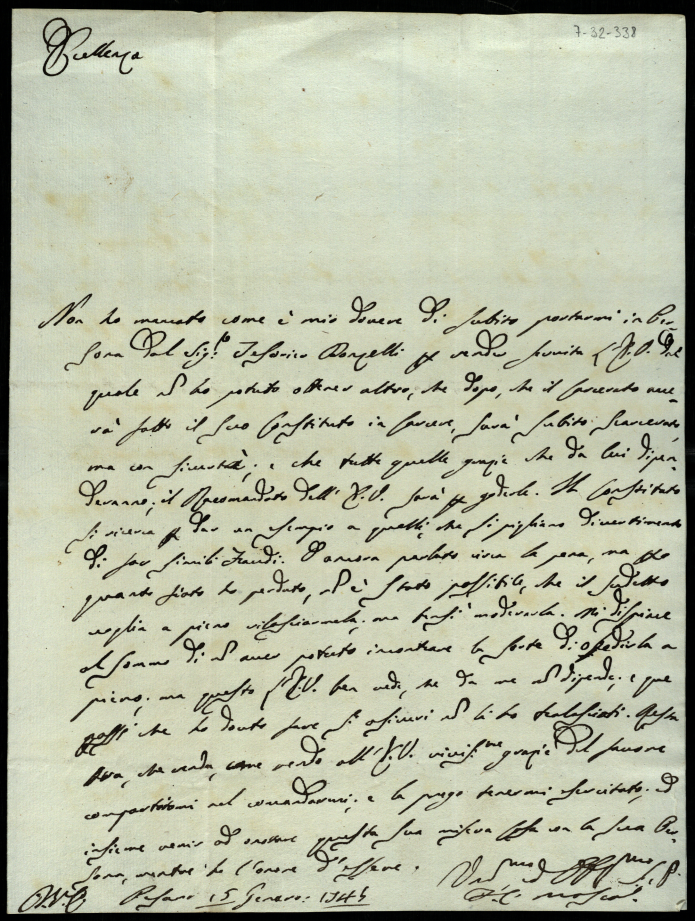 7-32-338
Eccellenza
Non ho mancato come è mio dovere di subito portarmi in Per-
sona dal Sig.r Ronzelli per render servita l'E.V. dal
quale n ho potuto ottener altro, che dopo, che il Carcerato ave-
rà fatto il suo Constituto in Carcere, sarà subito scarcerato,
ma con sicurtà; e che tutte quelle grazie che da lui dipen-
deranno, il Racomandato dell'E.V. sarà per goderle. Il Constituto
si ricerca per dar un esempio a quelli, che si pigliano divertimento
di far simili Fraudi. O ancora parlato circa la pena, ma per
quanto fiato ho perduto, n è stato possibile, che il sudetto
voglia a pieno rilasciarmela, ma bensì moderarla. Mi dispiace
al sommo di n aver potuto incontrare la sorte di a
pieno; ma questo l'E.V. ben vede, che da me n dipende; e que
passi che ho dovuto fare si assicuri n li ho tralasciati. Resta
ora, che renda, come rendo all'E.V. vivis.me grazie del favore
compartitomi nel comandarmi; e la prego tenermi esercitato, ed
insieme venir ad onorare questa sua misera Casa con la sua Per-
sona, mentre ho l'onore d'essere.
Pesaro 15 Genaro